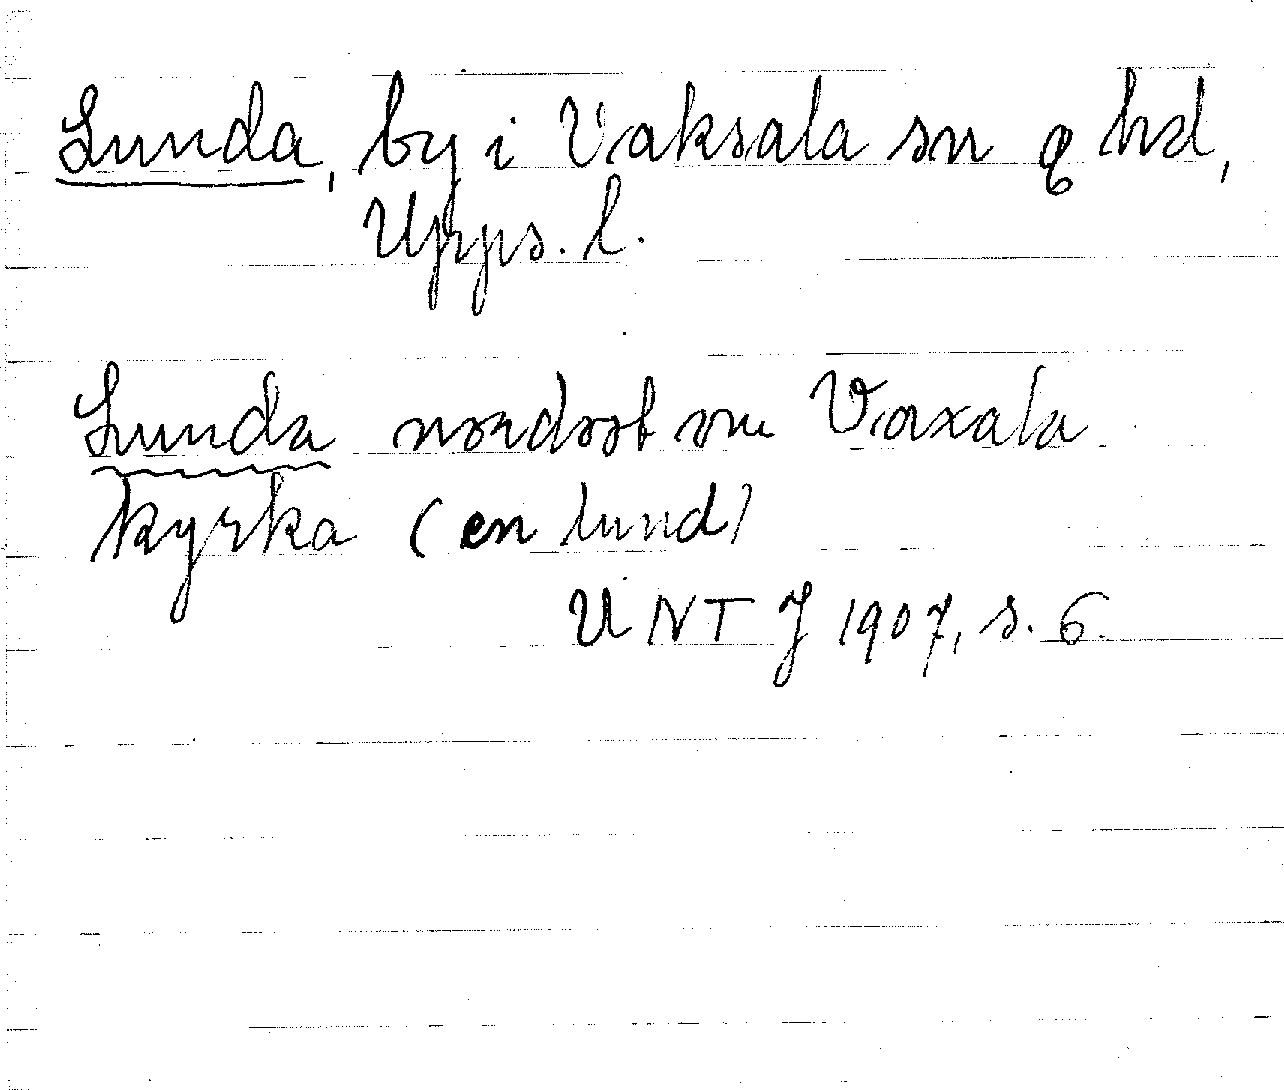 Lunda, by i Vaksala sn o hd,
Upps. l.
Lunda nordost om Vaxala
kyrka (en lund)
UNT J 1907, s. 6.